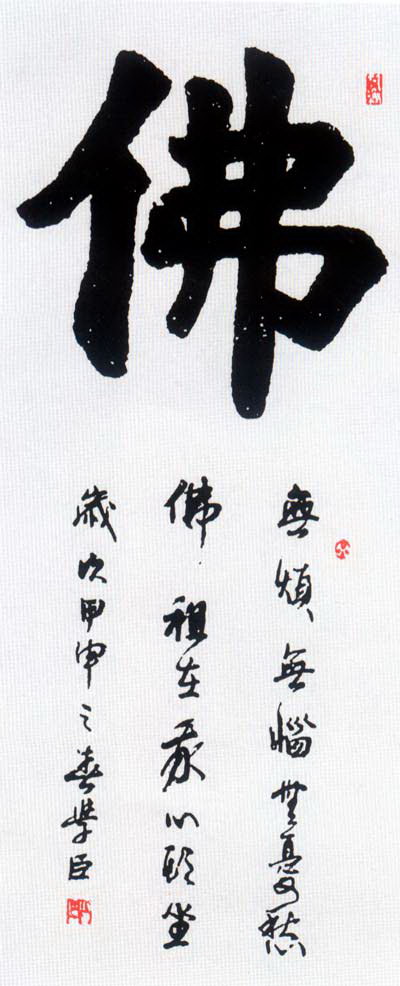 佛
無煩無惱無憂愁
佛祖在我心頭坐
歲次甲申之春學臣